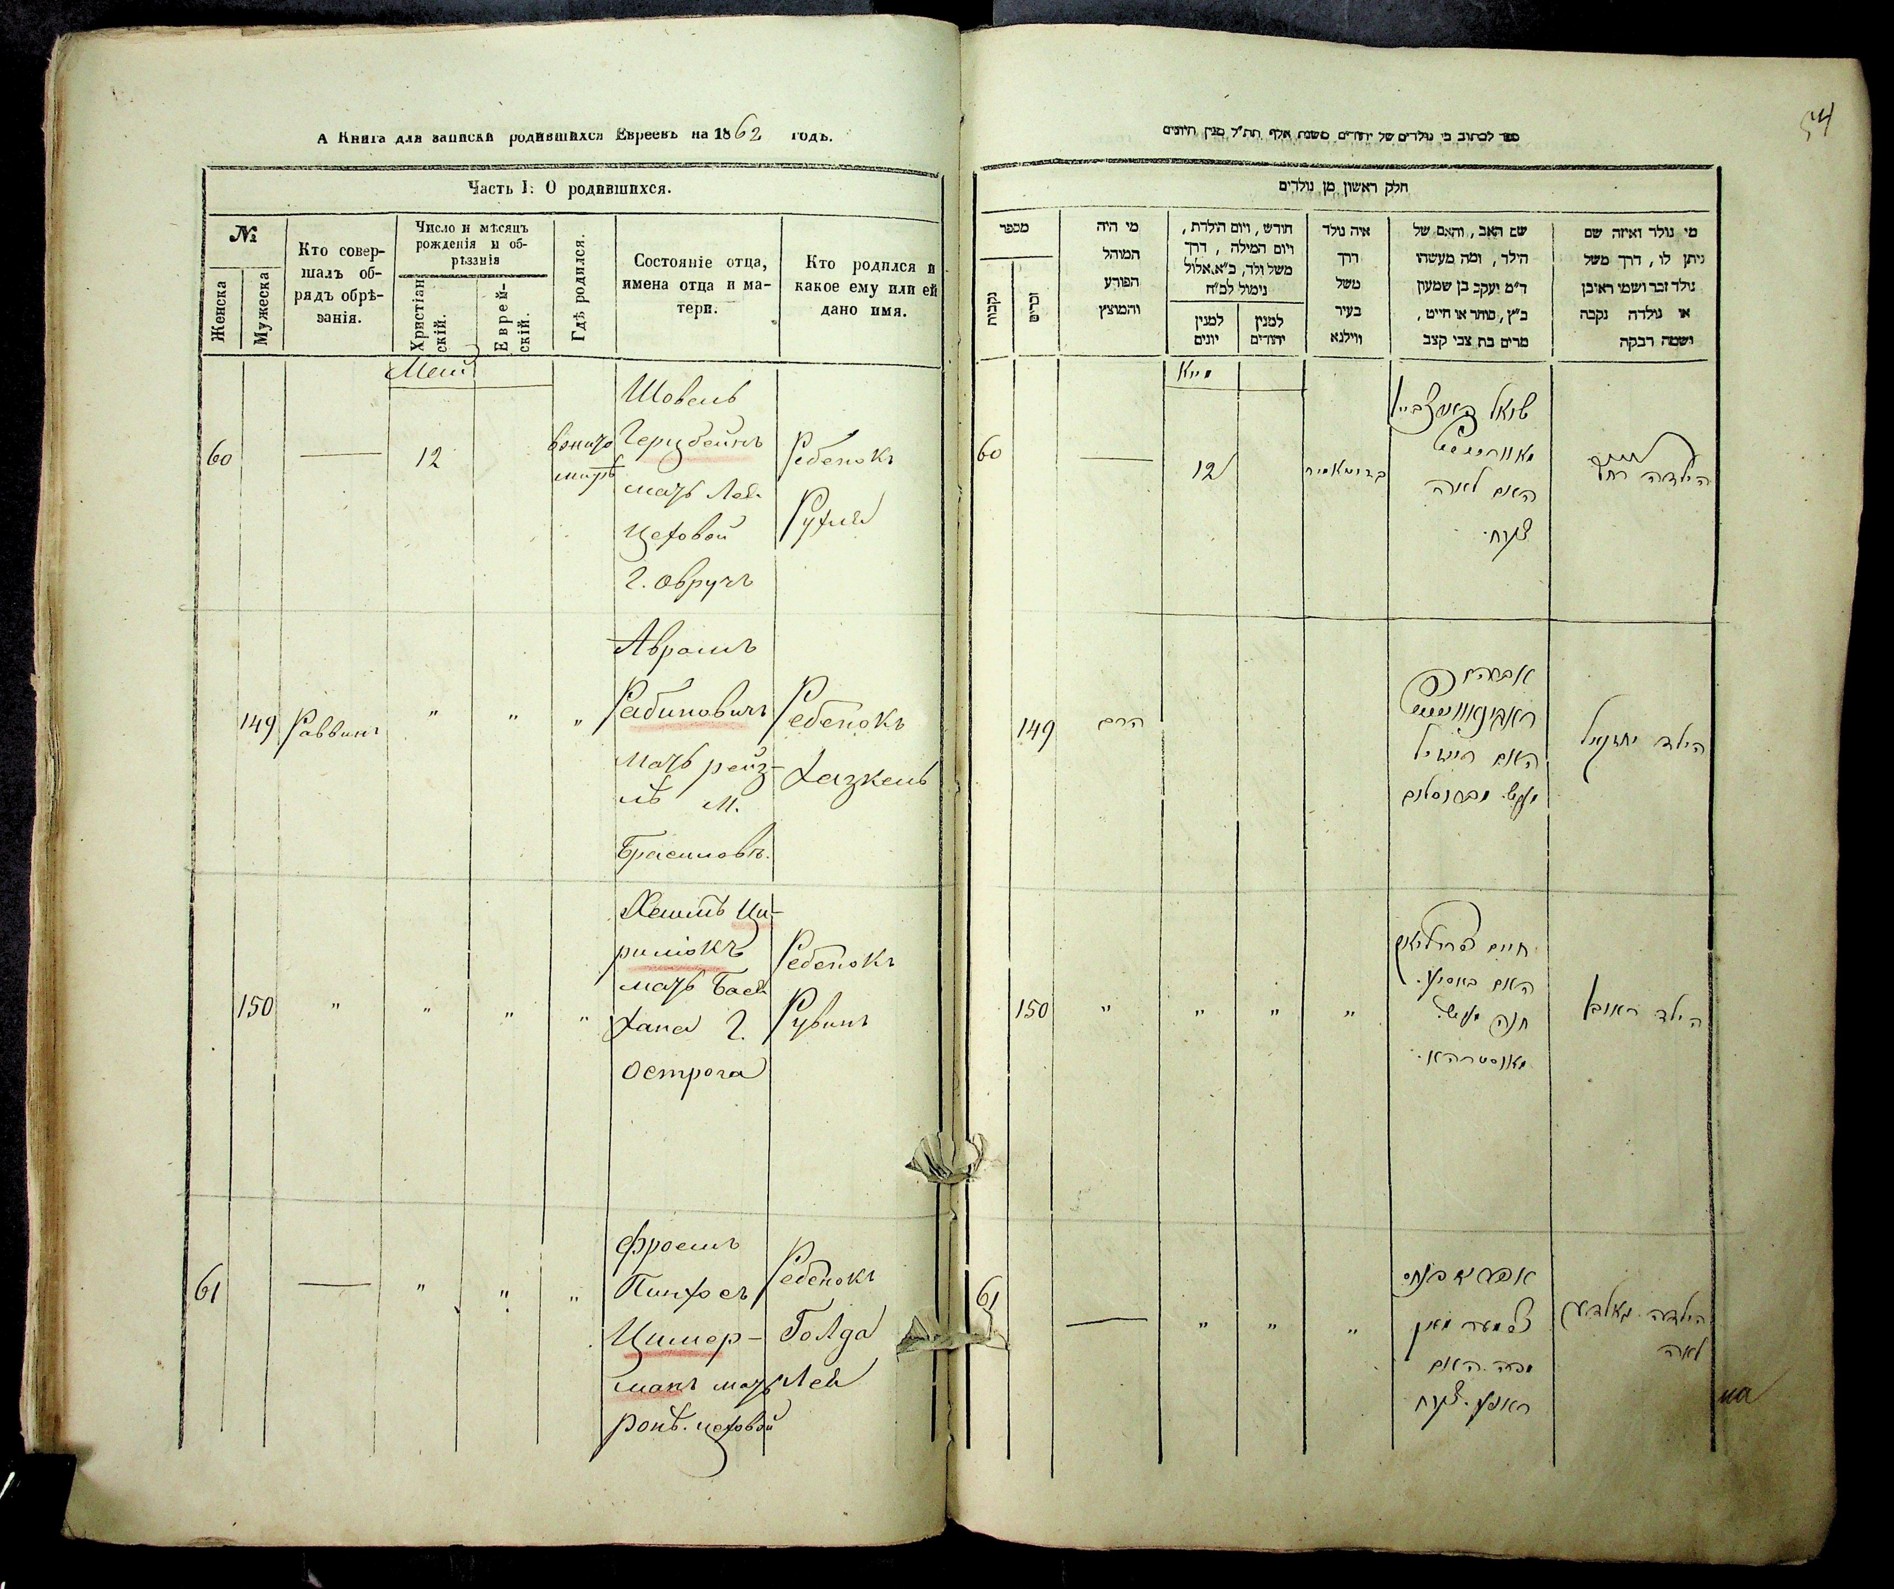 А Книга для записки родившихся Евреевъ на 1862 годъ.
Часть I: О родившихся.
№
Женска
Мужеска
Кто совер-
шалъ об-
рядъ обрѣ-
занія.
Число и мѣсяцъ
рожденія и об-
рѣзанія
Христіан
скій.
Еврей-
скій.
Гдѣ родился.
Состояніе отца,
имена отца и ма-
тери.
Кто родился и
какое ему или ей
дано имя.
Маій
60
12
Шовель
Герцбейнъ
мать Лея
Цеховой
г. Овручъ
Ребенокъ
Рухля
149
Раввинъ
"
"
"
Аврамъ
Рабиновичъ
Мать рейз-
лѣ м.
Ребенокъ
Хазкель
150
"
"
"
"
Хаимъ Ци-
рилюкъ
мать Бася
Хана г.
Острога
Ребенокъ
Рувинъ
61
"
"
"
Фроемъ
Пинхосъ
Цимер-
манъ мать
цеховой
Ребенокъ
Голда
Лея
54
ספר לכתוב בו נולדים של יהודים משנת אלף תת"ל מנין היונים
חלק ראשון מן נולדים
מספר
נקבות
זכרים
מי היה
המוהל
הפורע
והמוצץ
חודש, ויום הולדת,
ויום המילה, דרך
משל ולד, כ"א.אלול
נימול לכ"ח
למנין
יונים
למנין
יהודים
איה נולד
דרך
משל
בעיר
ווילנא
שם האב, והאם של
הילד, ומה מעשהו
ד"מ יעקב בן שמעון
כ"ץ, סוחר או חייט,
מרים בת צבי קצב
מי נולד ואיזה שם
ניתן לו, דרך משל
נולד זכר ושמו ראיבן
או נולדה נקבה
ושמה רבקה
מייא
60
12
האם לאה
149
הרב
אברהם
ראבינאוויטש
האם רייזיל
הילד יחזקאל
150
"
"
"
"
חיים
האם באסיע
חנה
מאוסטרהא.
הילד ראובן
61
"
"
"
האם
הילדה גאלדע
לאה
на